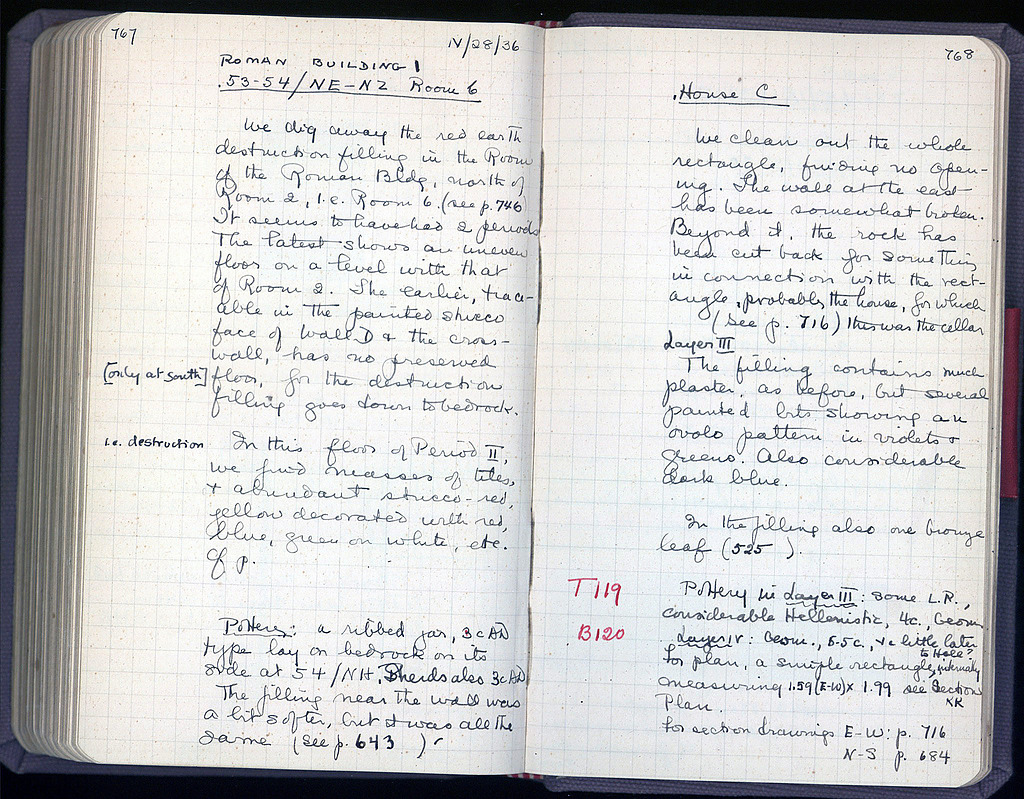 767
IV/28/36
ROMAN BUILDING 1
53-54/NE-NZ Room 6
We dig away the red earth
destruction filling in the Room
of the Roman Bldg, north of
Room 2, i.e. Room 6. (see p. 746
It seems to have had 2 periods
The latest shows an uneven
floor on a level with that
of Room 2. The earlier, trace-
able in the painted stucco
face of Wall D & the cross-
wall, has no preserved
[only at south] floor, for the destruction
filling goes down to bedrock.
i.e. destruction In this floor of Period II,
we find masses of tiles,
& abundant stucco-red,
yellow decorated with red,
blue, green on white, etc.
Cf p.
Pottery: a ribbed jar, 3c AD
type lay on bedrock on its
side at 54/NH. Sherds also 3c AD
The filling near the wall was
a bit softer, but it was all the
same (see p. 643 )
768
House C
We clean out the whole
rectangle, finding no open-
ing. The wall at the east
has been somewhat broken.
Beyond it, the rock has
been cut back for something
in connection with the rect-
angle, probably the house, for which
(see p. 716) this was the cellar
Layer III
The filling contains much
plaster, as before, but several
painted bits showing an
ovolo pattern in violets &
greens. Also considerable
dark blue.
In the filling also one bronze
leaf (525 ).
T119
Pottery in Layer III: some L.R.,
considerable Hellenistic, 4c., Geom.
B120
Layer IV: Geom., 6-5c., & a little later
to Hell?
For plan, a simple rectangle, internally
measuring 1.59 (E-W) x 1.99 see Section
KR
Plan.
For section drawings E-W: p. 716
N-S p. 684